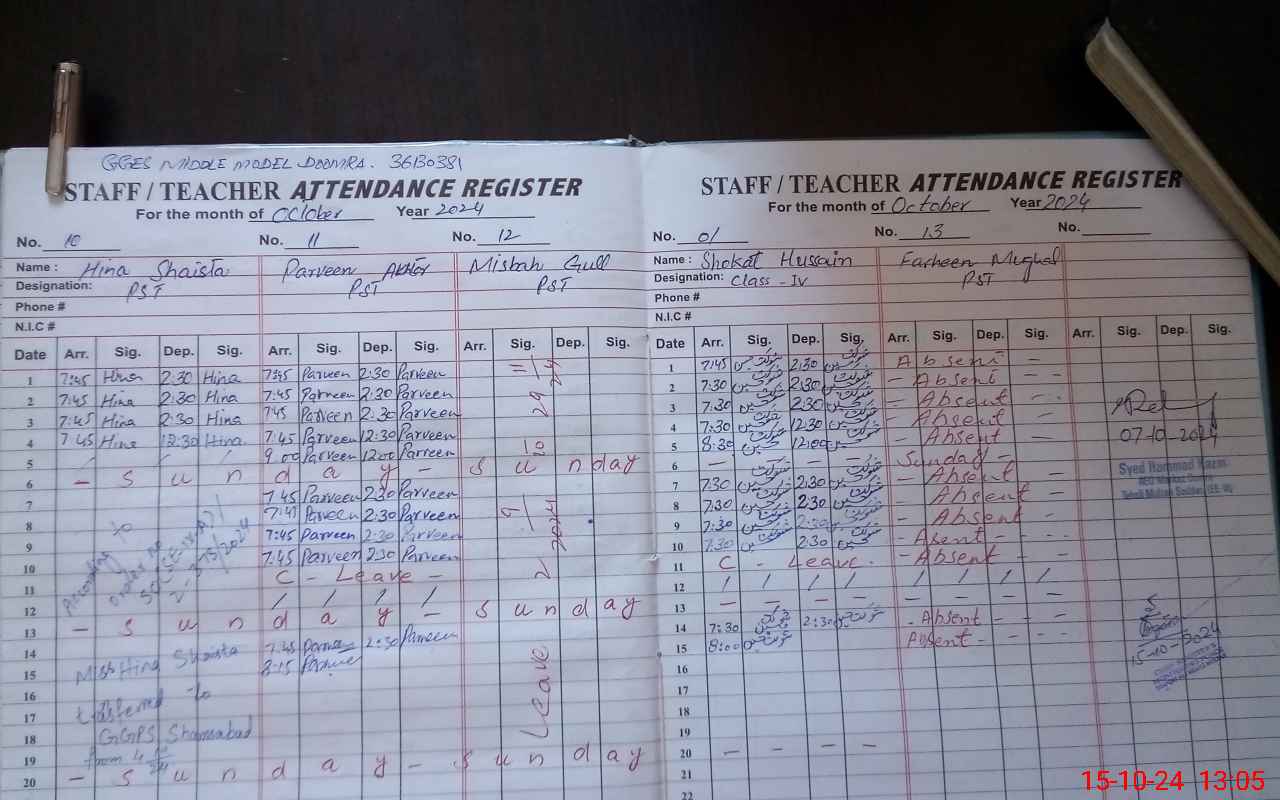 GGES MIDDLE MODEL DOOMRA. 36130381
STAFF / TEACHER ATTENDANCE REGISTER
For the month of October Year 2024
No. 10 No. 11 No. 12
Name : Hina Shaista Parveen Akhtar Misbah Gull
Designation: PST PST PST
Phone #
N.I.C #
Date Arr. Sig. Dep. Sig. Arr. Sig. Dep. Sig. Arr. Sig. Dep. Sig.
1 7:45 Hina 2:30 Hina 7:45 Parveen 2:30 Parveen
2 7:45 Hina 2:30 Hina 7:45 Parveen 2:30 Parveen
3 7:45 Hina 2:30 Hina 7:45 Parveen 2:30 Parveen
4 7:45 Hina 12:30 Hina 7:45 Parveen 12:30 Parveen
5 9:00 Parveen 12:00 Parveen
6 - Sunday - Sunday
7 7:45 Parveen 2:30 Parveen
8 7:45 Parveen 2:30 Parveen
9 7:45 Parveen 2:30 Parveen
10 7:45 Parveen 2:30 Parveen
11 C - Leave -
12 / / / /
13 - Sunday - Sunday
14 7:45 Parveen 2:30 Parveen
15 8:15 Parveen
16
17
18
19
20 - Sunday - Sunday
According to
order no
Miss Hina Shaista
trasferred to
GGPS Shamsabad
from
Leave
STAFF / TEACHER ATTENDANCE REGISTER
For the month of October Year 2024
No. 01 No. 13 No.
Name : Shokat Hussain Farheen Mughal
Designation: Class - IV PST
Phone #
N.I.C #
Date Arr. Sig. Dep. Sig. Arr. Sig. Dep. Sig. Arr. Sig. Dep. Sig.
1 7:45 شوکت حسین 2:30 شوکت حسین Absent -
2 7:30 شوکت حسین 2:30 شوکت حسین - Absent - -
3 7:30 شوکت حسین 2:30 شوکت حسین - Absent - -
4 7:30 شوکت حسین 12:30 شوکت حسین - Absent - -
5 8:30 شوکت حسین 12:00 شوکت حسین - Absent -
6 - - - - Sunday -
7 7:30 شوکت حسین 2:30 شوکت حسین - Absent -
8 7:30 شوکت حسین 2:30 شوکت حسین Absent -
9 7:30 شوکت حسین 2:30 شوکت حسین - Absent -
10 7:30 شوکت حسین 2:30 شوکت حسین - Asent - - -
11 C - Leave. - Absent -
12 / / / / / / / /
13 - - - - - - - -
14 7:30 شوکت حسین 2:30 شوکت حسین - Absent - -
15 8:00 شوکت حسین Absent - - - -
16
17
18
19
20 - - - -
21
22
07-10-2024
Syed Hammad Kazmi
15-10-2024
15-10-24 13:05